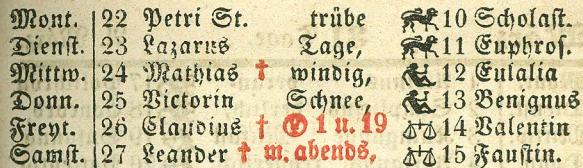 Mont. 22 Petri St. trübe 10 Scholast.
Dienst. 23 Lazarus Tage, 11 Euphros.
Mittw. 24 Mathias † windig, 12 Eulalia
Donn. 25 Victorin Schnee, 13 Benignus
Freyt. 26 Claudius † 1 u. 19 14 Valentin
Samst. 27 Leander † m. abends, 15 Faustin.